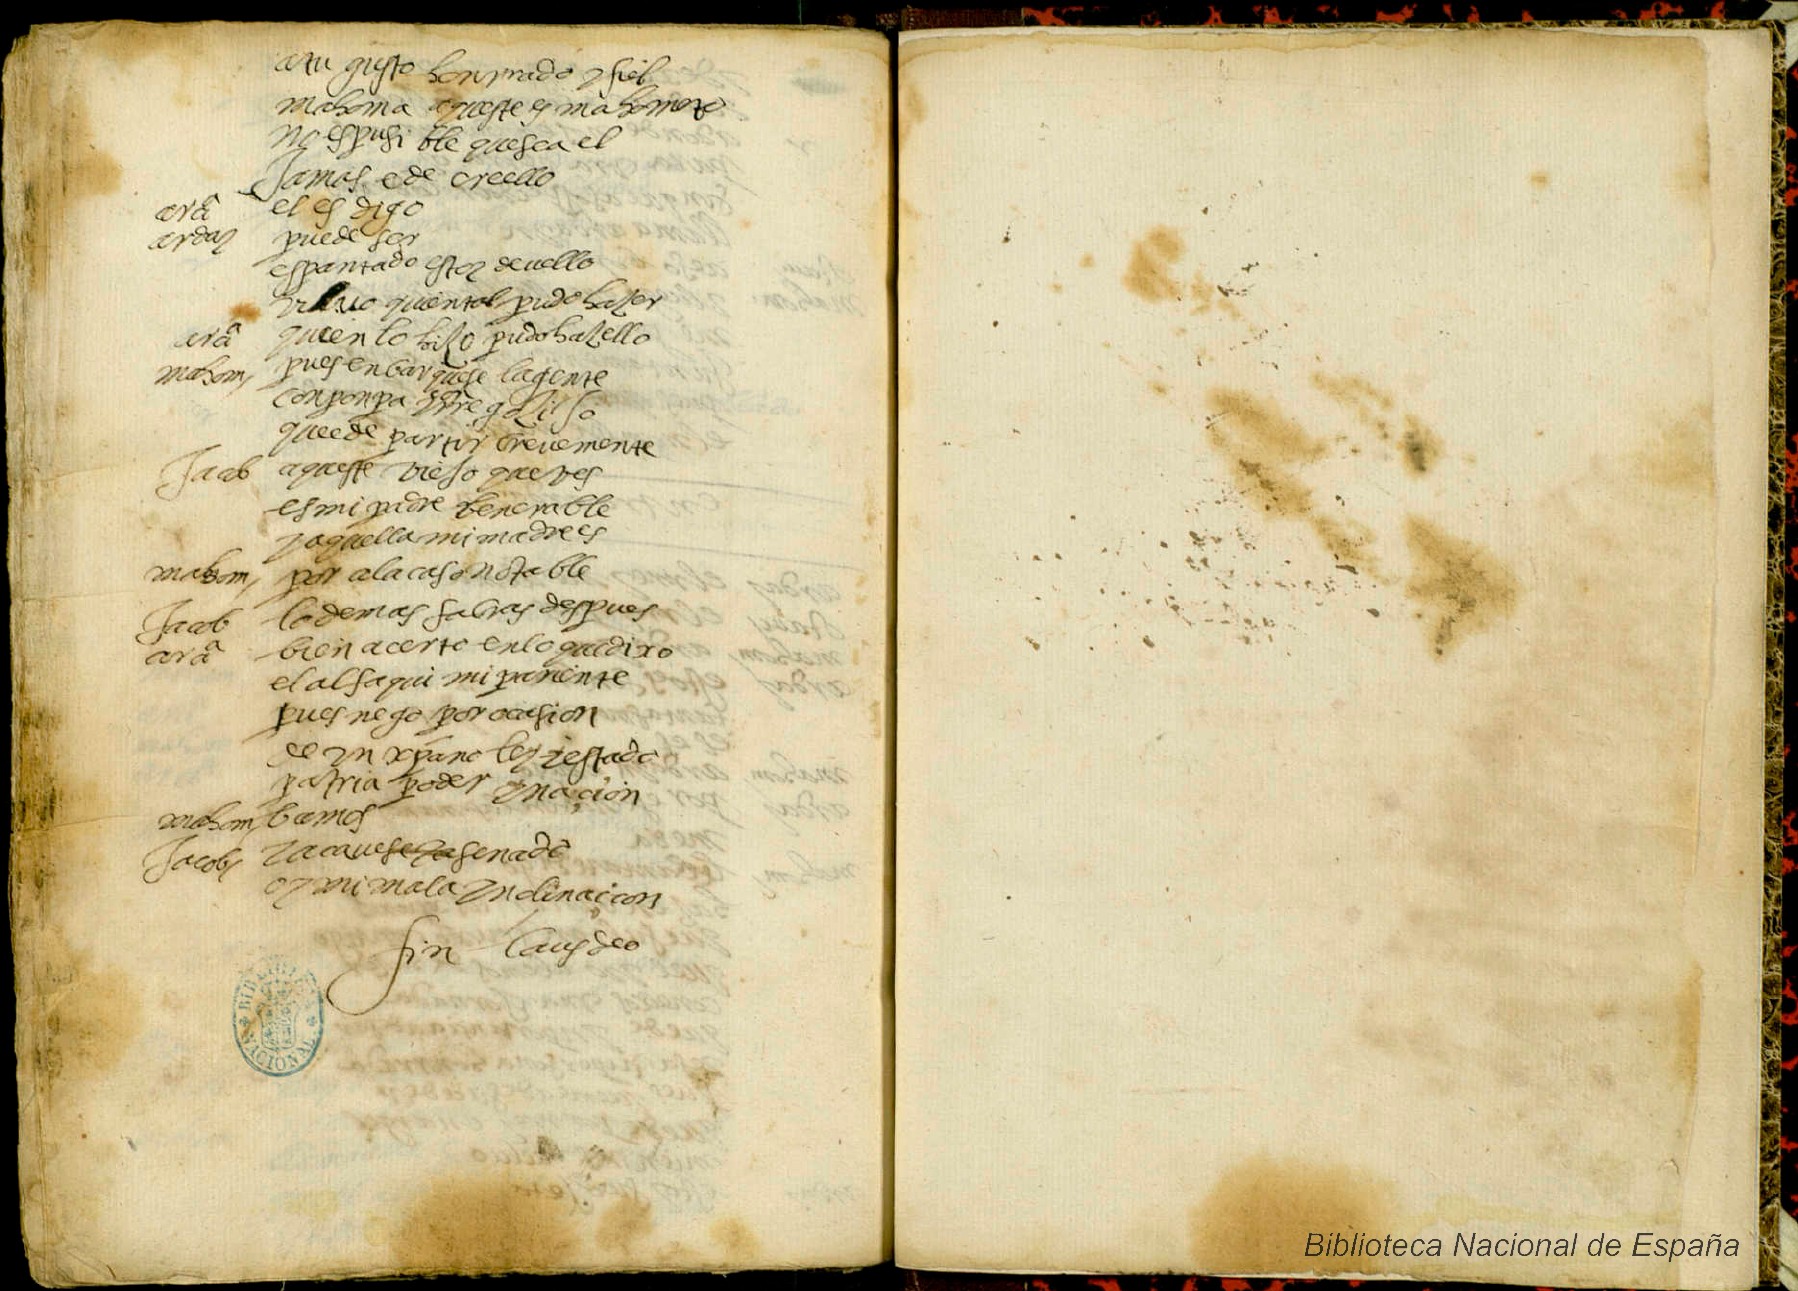 a tu gusto honrrado y fiel
mahoma aqueste es mahometo
no es pusible que sea el
Jamas e de creello
arã el es digo
ardaz puede ser
espantado estoy de vello
quien tal pudo hazer
arã quien lo hizo pudo hazello
mahom, pues enbarquese la gente
con ponpa y rregozijo
que e de partir brevemente
Jacob aqueste viejo que ves
es mi padre benerable
y aquella mi madre es
mahom, por ala caso notable
Jacob lo demas sabras despues
arã bien acerto en lo que dixo
el alfaqui mi pariente
pues nego por ocasion
de un xpano ley y estado
patria poder y nacion
mahom, bamos
Jacob, y aqui senado
oy mi mala ynclinacion
fin laus deo
BIBLIOTECA NACIONAL
Biblioteca Nacional de España